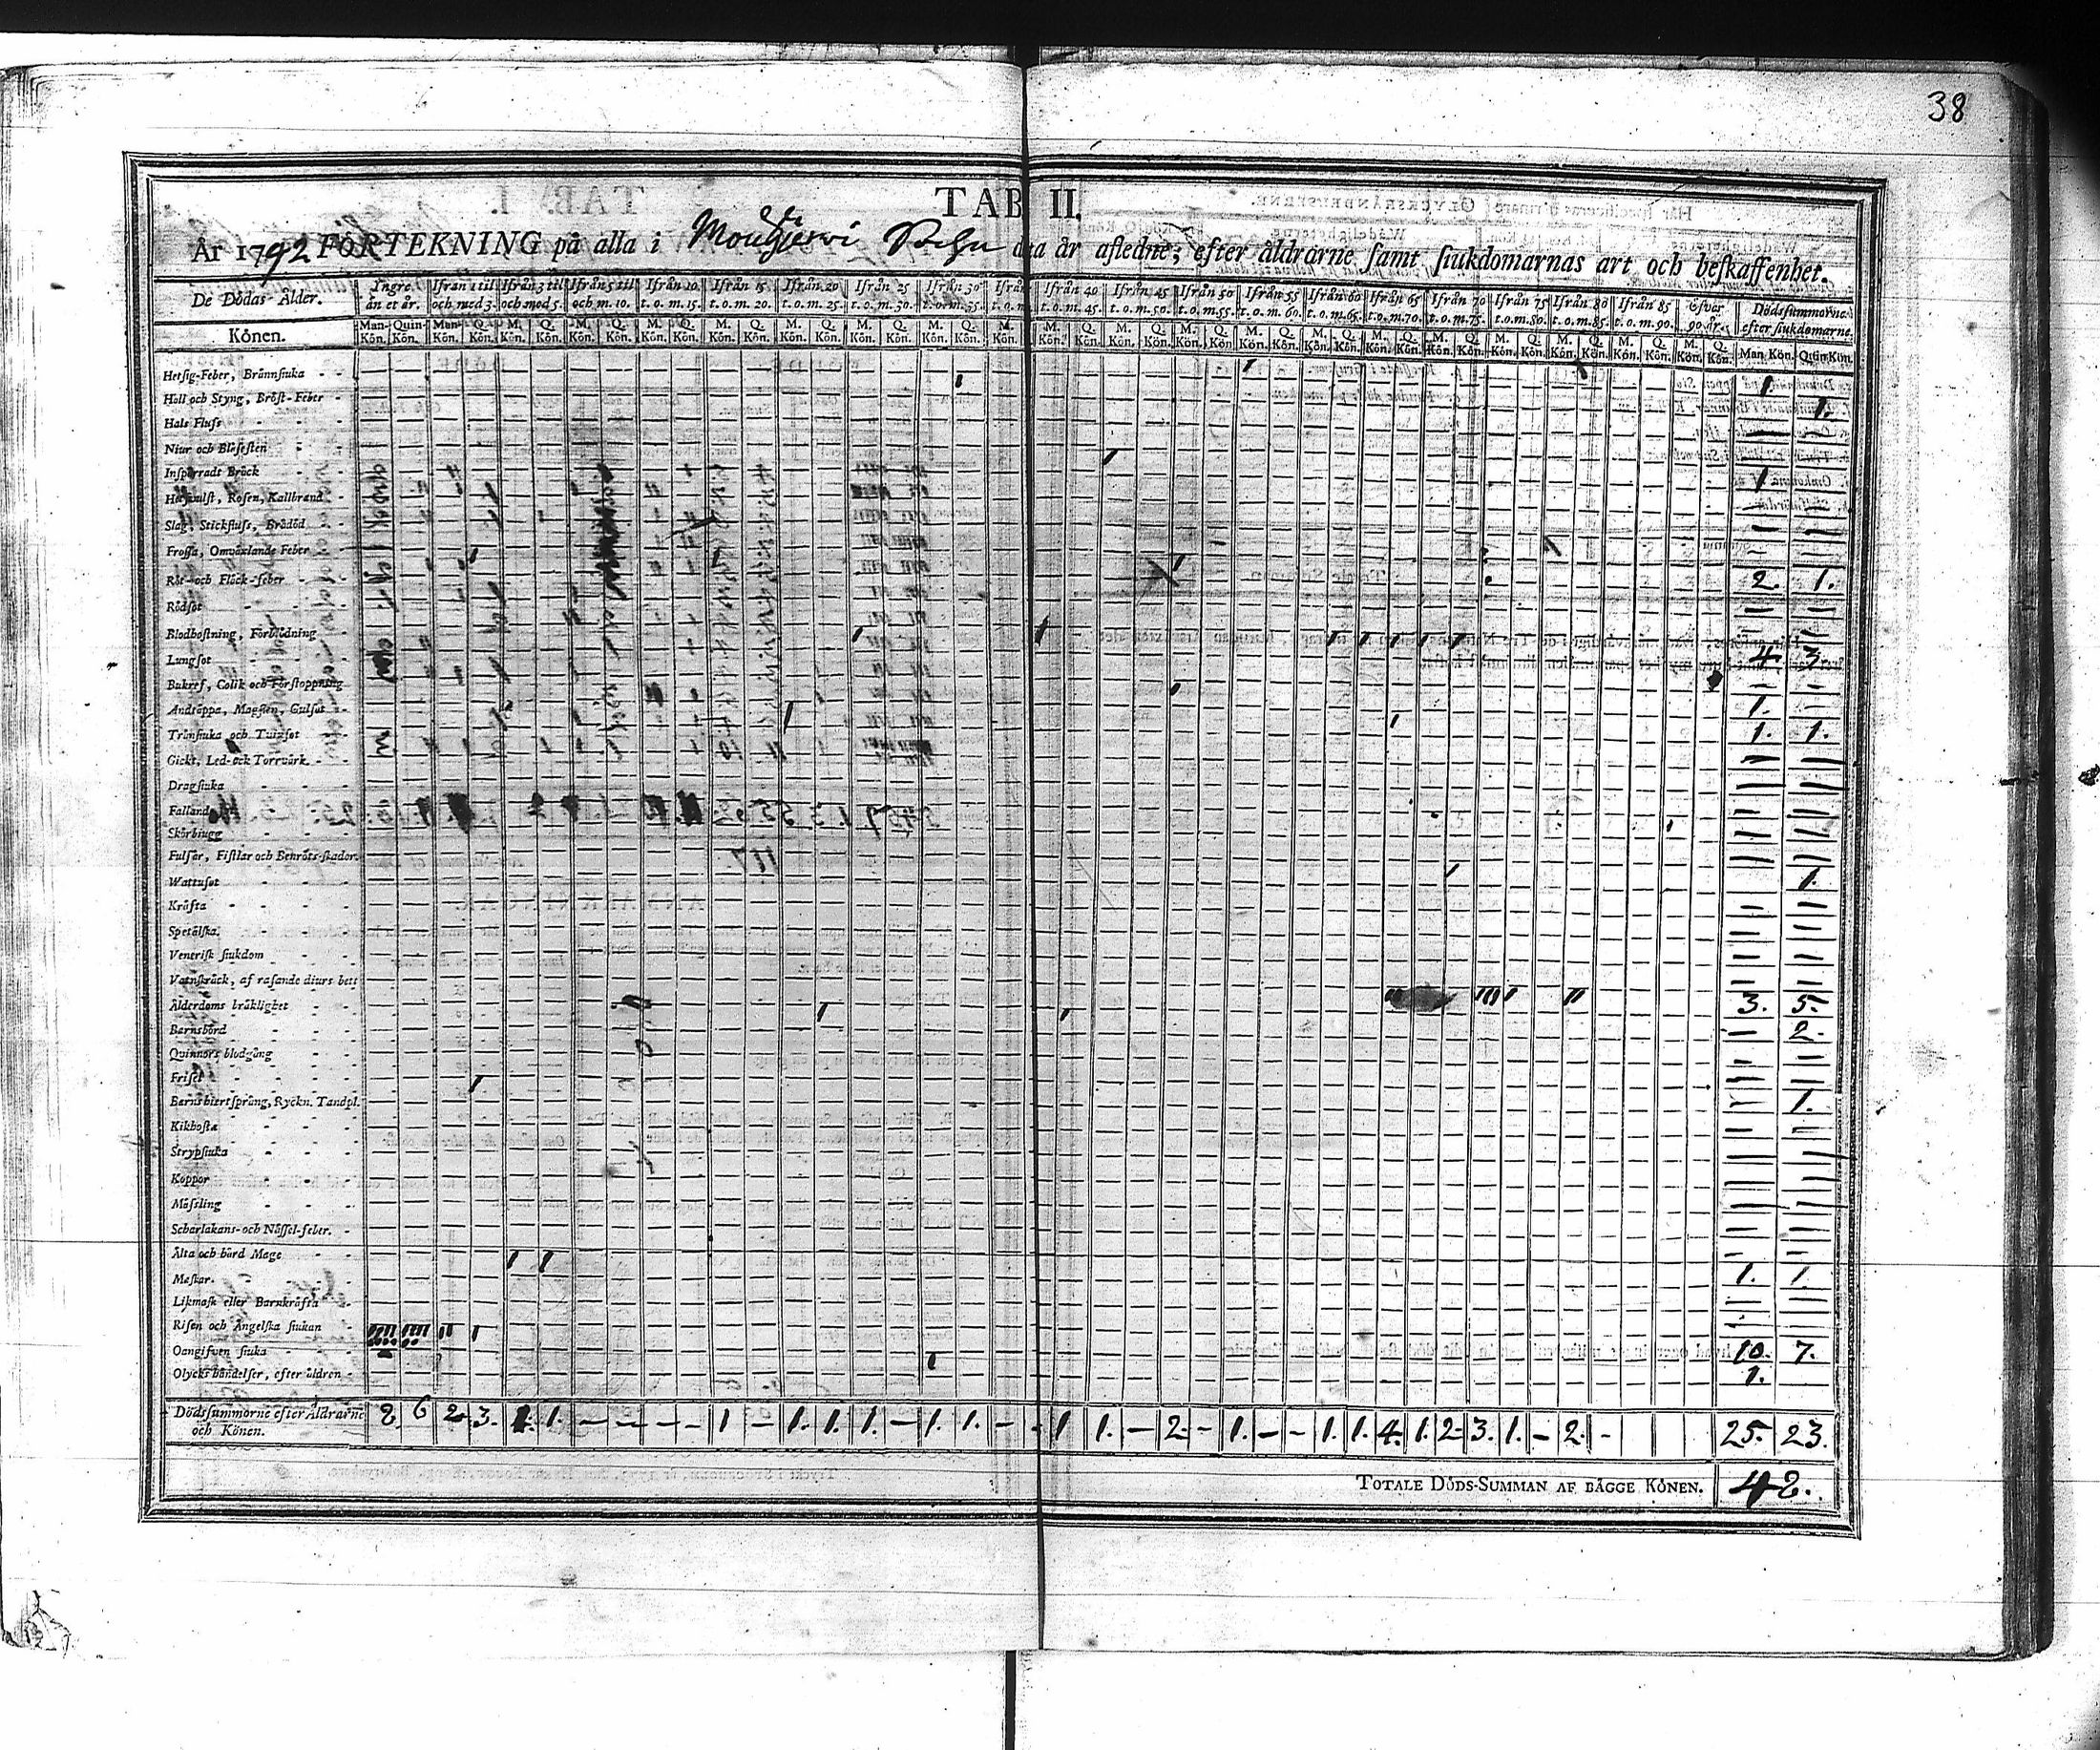 38
TAB II.
År 1792 FÖRTEKNING på alla i Sochn detta år afledne; efter åldrarne samt siukdomarnas art och beskaffenhet.
De Dödas Ålder. Yngre än et år. Ifrån 1 till och med 3. Ifrån 3 til och med 5. Ifrån 5 til och m. 10. Ifrån 10 t. o. m. 15. Ifrån 15 t. o. m. 20. Ifrån 20 t. o. m. 25. Ifrån 25 t. o. m. 30. Ifrån 30 t. o. m. 35. Ifrån t. o. m. Ifrån 40 t. o. m. 45. Ifrån 45 t. o. m. 50. Ifrån 50 t. o. m. 55. Ifrån 55 t. o. m. 60. Ifrån 60 t. o. m. 65. Ifrån 65 t. o. m. 70. Ifrån 70 t. o. m. 75. Ifrån 75 t. o. m. 80. Ifrån 80 t. o. m. 85. Ifrån 85 t. o. m. 90. Öfver 90 år. Dödssummorne efter siukdomarne.
Könen. Man-Kön. Quin-Kön. Man-Kön. Q. Kön. M. Kön. Q. Kön. M. Kön. Q. Kön. M. Kön. Q. Kön. M. Kön. Q. Kön. M. Kön. Q. Kön. M. Kön. Q. Kön. M. Kön. Q. Kön. M. Kön. M. Kön. Q. Kön. M. Kön. Q. Kön. M. Kön. Q. Kön. M. Kön. Q. Kön. M. Kön. Q. Kön. M. Kön. Q. Kön. M. Kön. Q. Kön. M. Kön. Q. Kön. M. Kön. Q. Kön. M. Kön. Q. Kön. M. Kön. Q. Kön. Man Kön. Quin Kön.
Hetsig-Feber, Brännsiuka 1.
Håll och Styng, Bröst-Feber 1.
Hals Fluss
Niur och Blåsesten
Insperradt Bråck 1
Hetsvulst, Rosen, Kallbrand
Slag, Stickfluss, Brådöd
Frossa, Omväxlande Feber
Röt- och Fläck-feber 2. 1.
Rödsot
Blodhostning, Förblödning
Lungsot 4 3.
Bukref, Colik och Förstoppning
Andtäppa, Magsten, Gulsot 1.
Trånsiuka och Tvinsot 1. 1.
Gickt, Led- och Torrvärk
Dragsiuka
Falland
Skörbiugg
Fulsår, Fistlar och Benröts-skador
Wattusot 1.
Kräfta
Spetälska.
Venerisk siukdom
Vatnskräck, af rasande diurs bett
Ålderdoms bräklighet 3. 5.
Barnsbörd 2.
Quinnors blodgång
Frisel
Barns hiertsprång, Ryckn. Tandpl. 1.
Kikhosta
Strypsiuka
Koppor
Mässling
Scharlakans- och Nässel-feber.
Älta och hård Mage
Maskar 1. 1.
Likmask eller Barnkräfta
Risen och Ängelska siukan
Oangifven siuka 10. 7.
Olyckshändelser, efter åldren 1.
Dödssummorne efter Åldrarne
och Könen. 8 6 2 3. 1. 1. – – – – 1 – 1. 1. 1. – 1. 1. – 1 1. – 2. – 1. – – 1. 1. 4. 1. 2. 3. 1. – 2. – 25. 23.
TOTALE DÖDS-SUMMAN AF BÄGGE KÖNEN. 48.